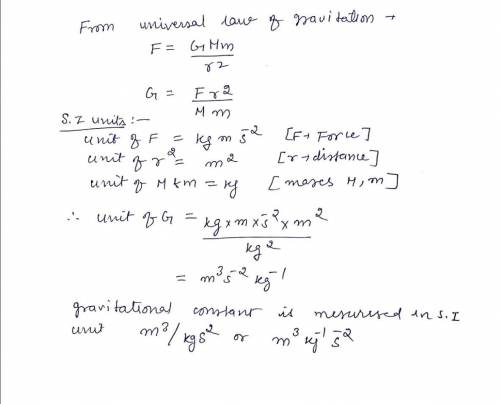 From universal law of gravitation →
F = GMm / r2
G = F r2 / M m
S.I units :-
unit of F = kg m s⁻² [F→ Force]
unit of r² = m2 [r→distance]
unit of M & m = kg [mases M, m]
∴ unit of G = kg × m × s⁻² × m² / kg 2
= m³ s⁻² kg⁻¹
gravitational constant is mesurised in S.I
unit m³/kgs² or m³ kg⁻¹ s⁻²